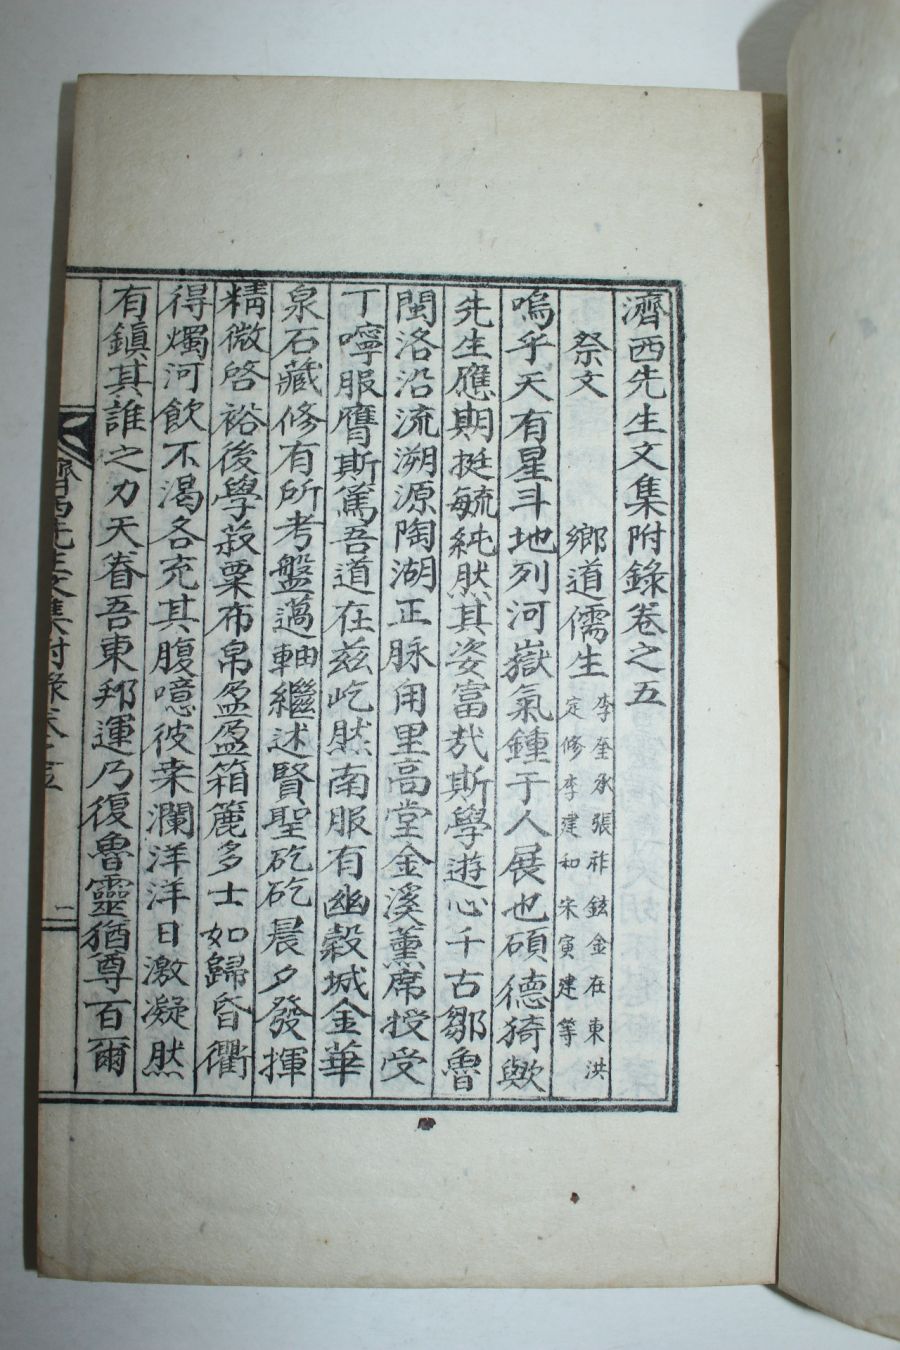 濟西先生文集附錄卷之五
祭文 鄉道儒生 李奎承張祚鉉金在東洪
定修李建和宋寅建等
嗚乎天有星斗地列河嶽氣鍾于人展也碩德猗歟
先生應期挺毓純然其姿富哉斯學遊心千古鄒魯
閩洛沿流溯源陶湖正脉甪里高堂金溪薰席授受
丁嚀服膺斯篤吾道在玆屹然南服有幽穀城金華
泉石藏修有所考盤薖軸繼述賢聖矻矻晨夕發揮
精微啓裕後學菽粟布帛盈盈箱簏多士如歸昏衢
得燭河飮不渴各充其腹噫彼桒瀾洋洋日激凝然
有鎮其誰之力天眷吾東邦運乃復魯靈猶尊百爾
濟西先生文集附錄卷之五
一